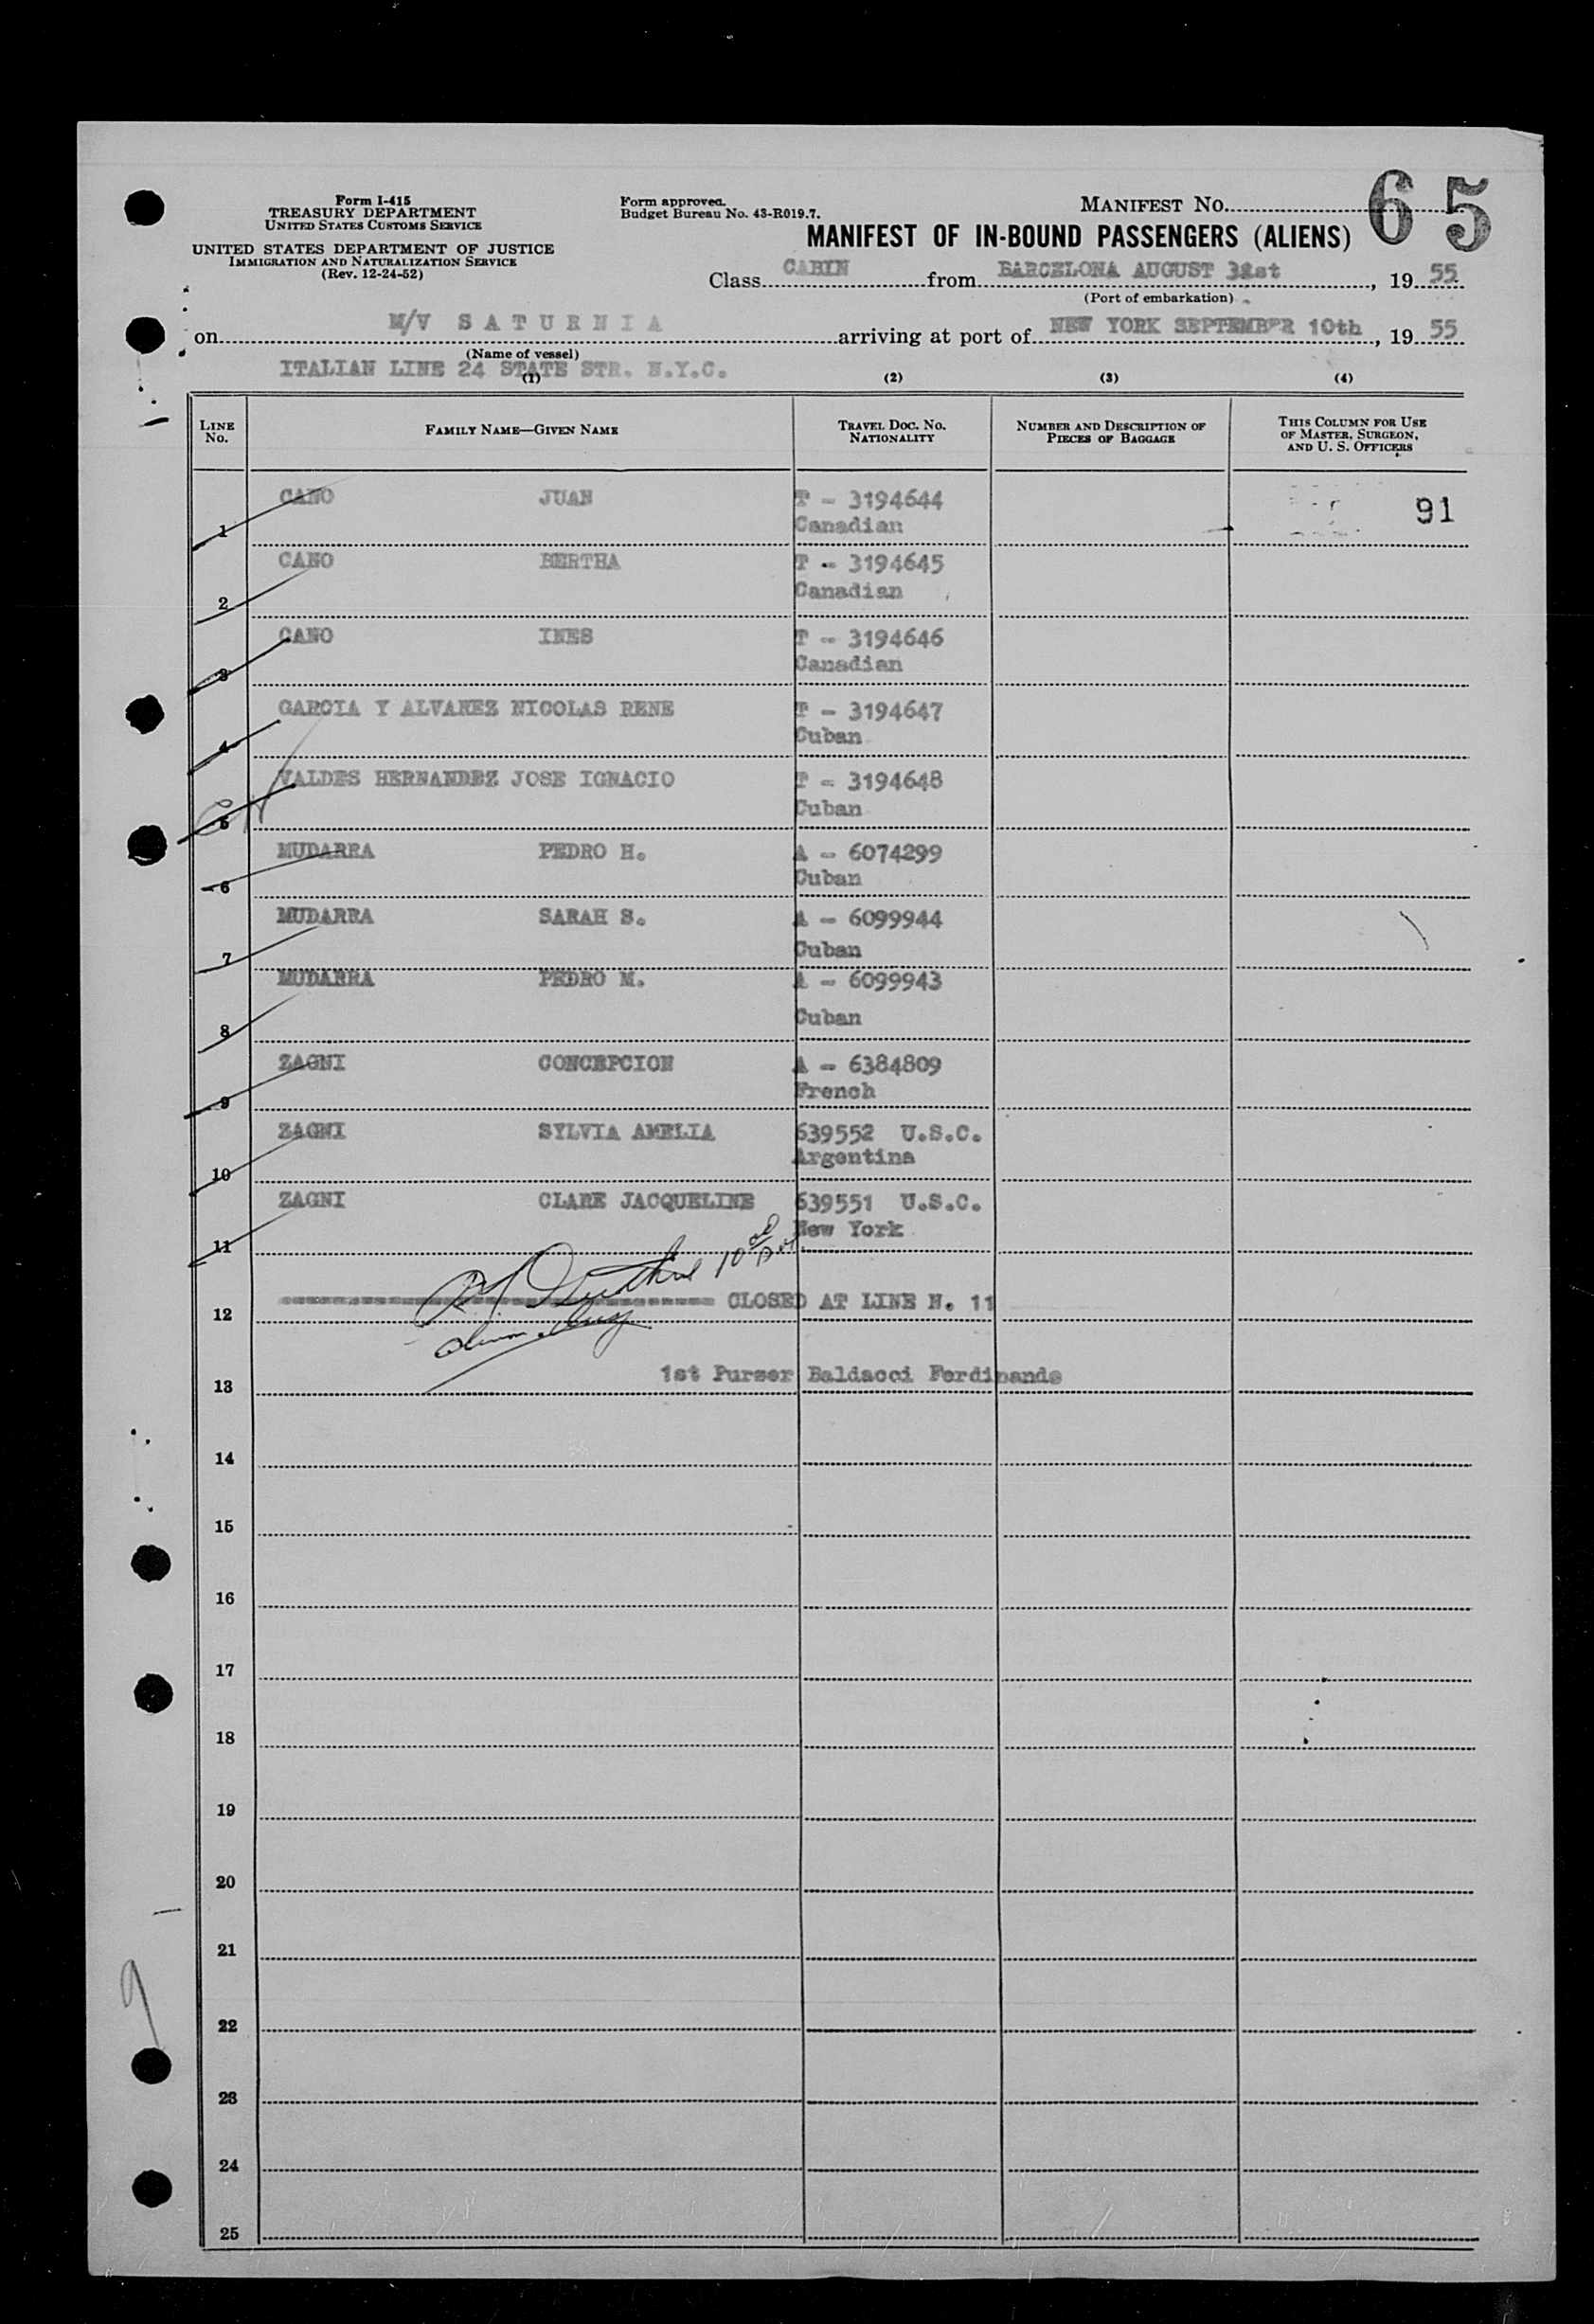 Form I-415
TREASURY DEPARTMENT
UNITED STATES CUSTOMS SERVICE
UNITED STATES DEPARTMENT OF JUSTICE
IMMIGRATION AND NATURALIZATION SERVICE
(Rev. 12-24-52)
Form approved.
Budget Bureau No. 43-R019.7.
MANIFEST NO. 65
MANIFEST OF IN-BOUND PASSENGERS (ALIENS)
Class CABIN from BARCELONA AUGUST 31st, 19 55
(Port of embarkation)
on M/V SATURNIA arriving at port of NEW YORK SEPTEMBER 10th, 19 55
(Name of vessel)
ITALIAN LINE 24 STATE STR. N.Y.C.
(1) (2) (3) (4)
LINE No. FAMILY NAME—GIVEN NAME TRAVEL DOC. NO. NATIONALITY NUMBER AND DESCRIPTION OF PIECES OF BAGGAGE THIS COLUMN FOR USE OF MASTER, SURGEON, AND U. S. OFFICERS
1 CANO JUAN T - 3194644 91
Canadian
2 CANO BERTHA T - 3194645
Canadian
3 CANO INES T - 3194646
Canadian
4 GARCIA Y ALVAREZ NICOLAS RENE T - 3194647
Cuban
5 VALDES HERNANDEZ JOSE IGNACIO T - 3194648
Cuban
6 MUDARRA PEDRO H. A - 6074299
Cuban
7 MUDARRA SARAH S. A - 6099944
Cuban
8 MUDARRA PEDRO M. A - 6099943
Cuban
9 ZAGNI CONCEPCION A - 6384809
French
10 ZAGNI SYLVIA AMELIA 639552 U.S.C.
Argentina
11 ZAGNI CLARE JACQUELINE 639551 U.S.C.
New York
12 CLOSED AT LINE N. 11
13 1st Purser Baldacci Ferdinando
14
15
16
17
18
19
20
21
22
23
24
25
9